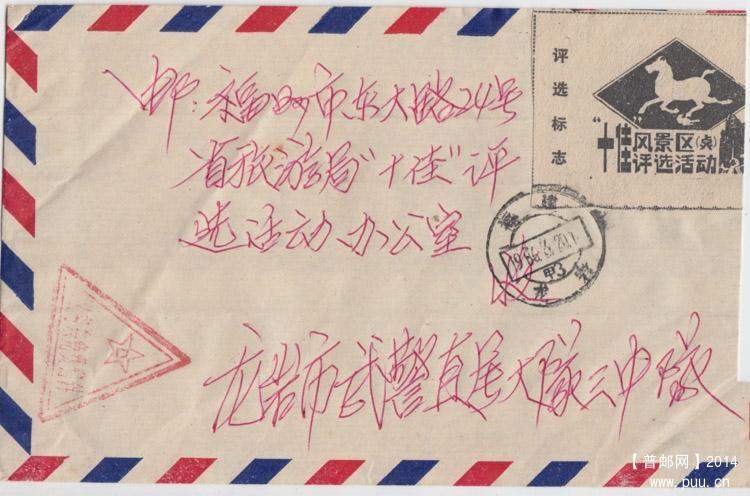 邮:福州市东大路24号
省旅游局"十佳"评
选活动办公室
收
龙岩市武警直属大队三中队
评选标志
"十佳风景区(点)
评选活动
福建
1986.3.20.1
甲3
龙岩
【普邮网】2014
www.puu.cn